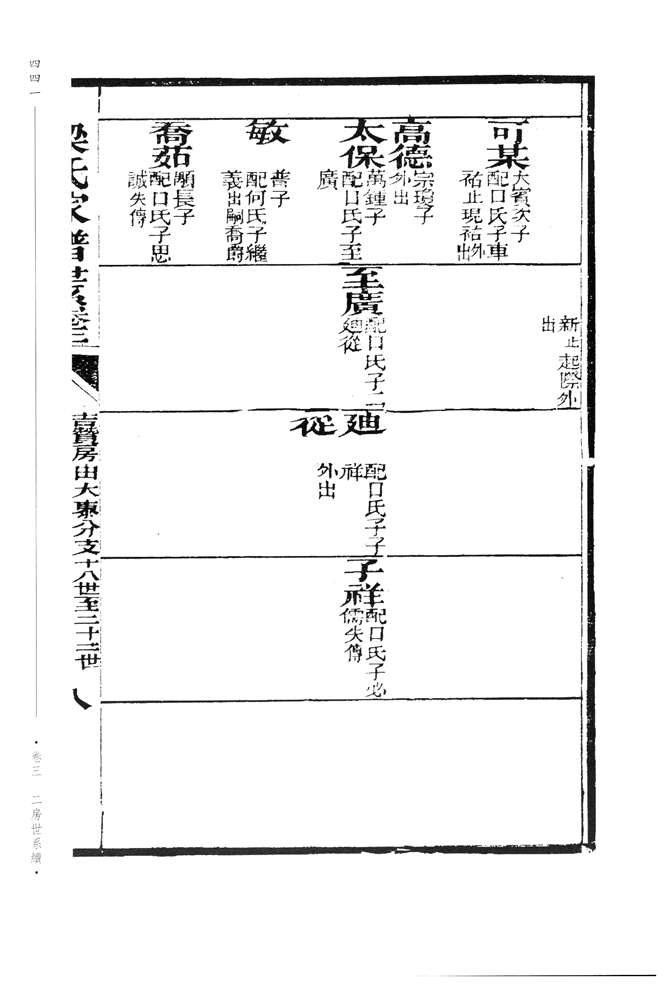 可某
大賓次子
配口氏子車
祐止現祐外出
高德
宗瓊子
外出
太保
萬鍾子
配口氏子至
廣
敏
善子
配何氏子繼
義出嗣喬爵
喬茹
顯長子
配口氏子思
誠失傳
新止起際外
出
至廣
配口氏子二
廻從
廻
配口氏子子
祥
外出
從
子祥
配口氏子必
儒失傳
梁氏家譜世系卷三
吉賁房由大東分支十八世至二十二世
八
四四一
卷三 二房世系續